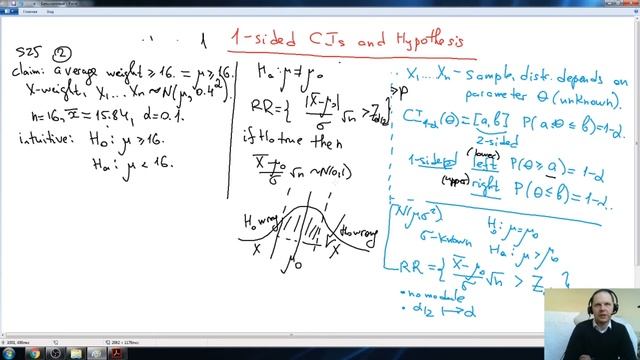 1-sided CIs and Hypothesis
S25 ②
claim: average weight ≥ 16. = μ ≥ 16.
X-weight, X₁...Xn ~ N(μ, 0.4²)
n=16, x̄ = 15.84, α = 0.1.
intuitive: H₀: μ ≥ 16.
Ha: μ < 16.
Ha: μ ≠ μ₀
RR = { |X̄-μ₀|/σ √n > Z α/2 }
if H₀ true then
X̄-μ₀/σ √n ~ N(0,1)
H₀ wrong
H₀ wrong
X
μ₀
X
X₁...Xn - sample, distr. depends on
parameter θ (unknown).
CI 1-α (θ) = [a,b] P(a≤θ≤b)=1-α.
2-sided
(lower)
1-sided left P(θ ≥ a) = 1-α
(upper) right P(θ ≤ b) = 1-α.
N(μ,σ²)
σ-known
H₀: μ = μ₀
Ha: μ > μ₀
RR = { X̄-μ₀/σ √n > Z }
• no module
• α/2 ↦ α